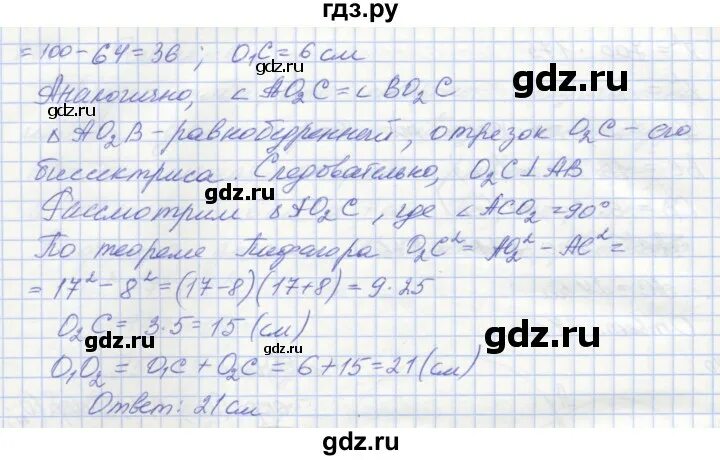 гдз.ру
= 100 - 64 = 36 ; O₁C = 6 см
gdz.ru
Аналогично, ∠ AO₂C = ∠ BO₂C
gdz.ru
gdz.ru
Δ AO₂B - равнобедренный, отрезок O₂C - его
биссектриса. Следовательно, O₂C ⊥ AB
gdz.ru
Рассмотрим Δ AO₂C, где ∠ ACO₂ = 90°
По теореме Пифагора O₂C² = AO₂² - AC² =
= 17² - 8² = (17-8)(17+8) = 9·25
O₂C = 3·5 = 15 (см)
gdz.ru
gdz.ru
O₁O₂ = O₁C + O₂C = 6 + 15 = 21 (см)
Ответ: 21 см
gdz.ru
gdz.ru